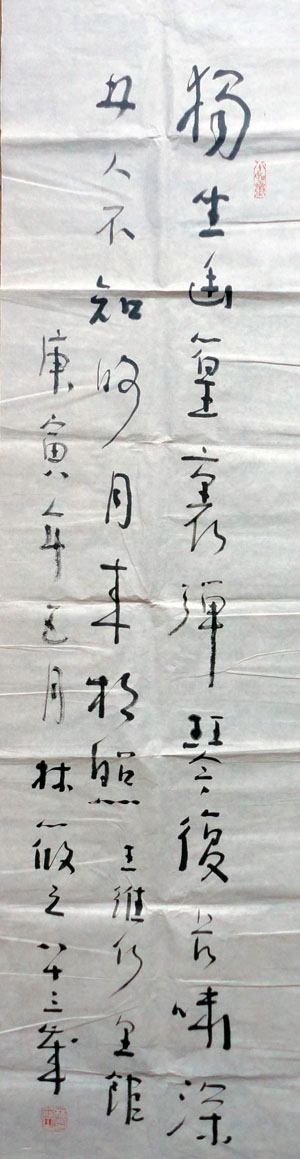 獨坐幽篁裏彈琴復長嘯深
林人不知明月來相照 王維竹里館
庚寅年五月林筱之八十三歲